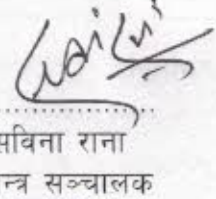 सविना राना
न्त्र सञ्चालक